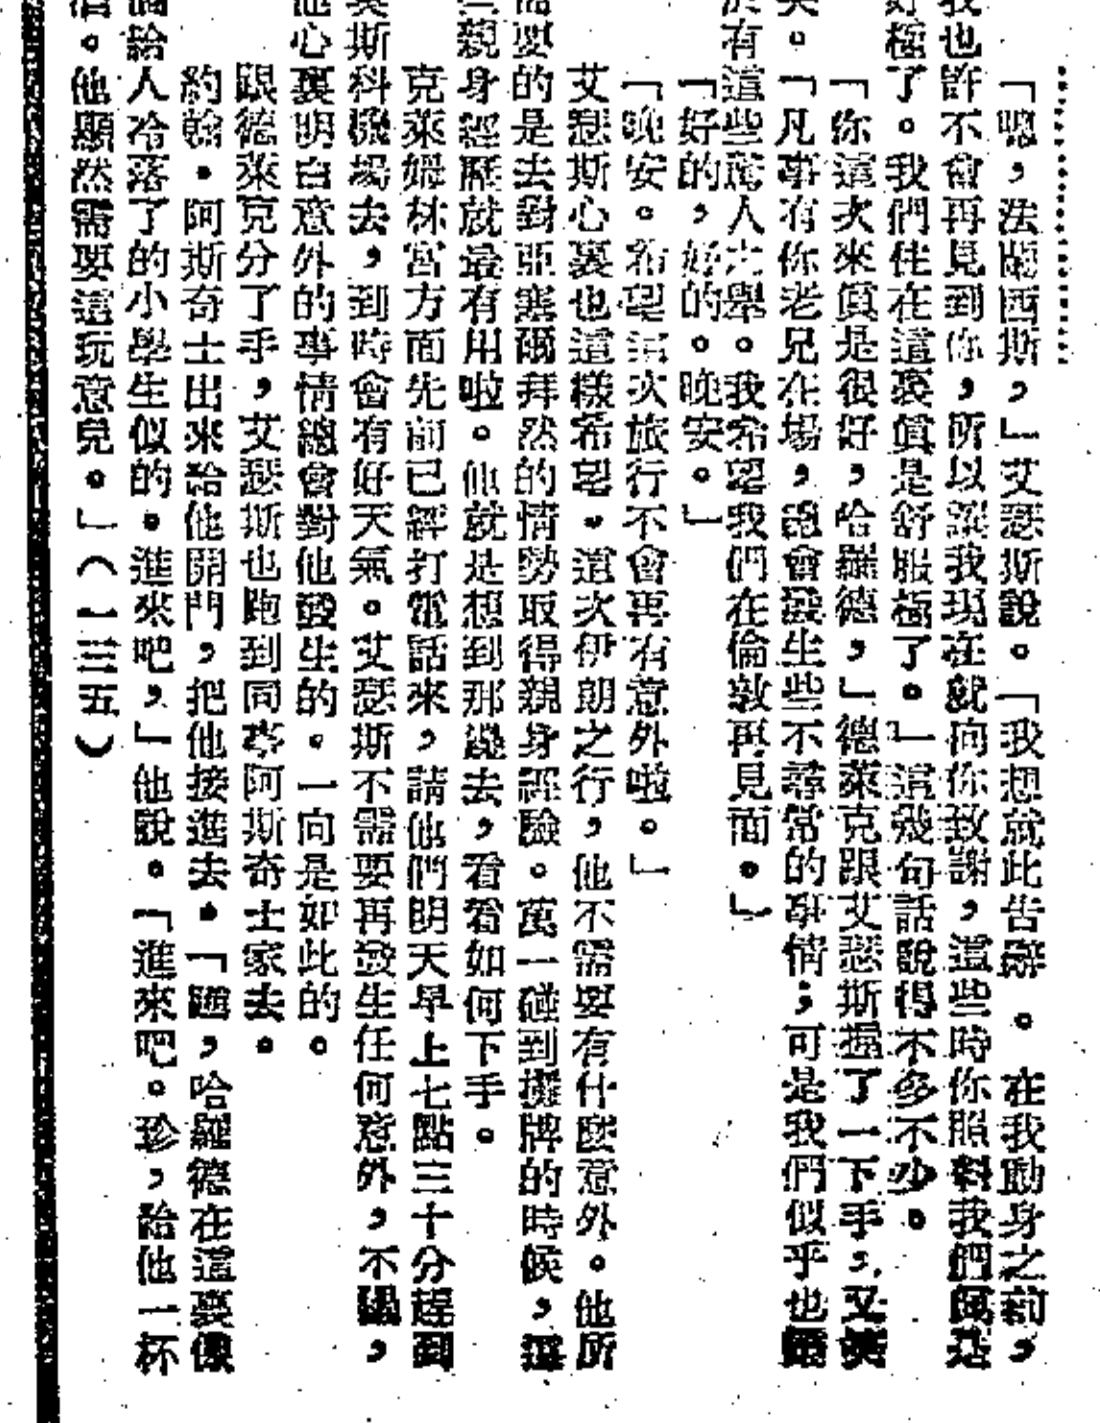 「嗯，法蘭西斯，」艾瑟斯說。「我想就此告辭。在我動身之前，
我也許不會再見到你，所以讓我現在就向你致謝，這些時你照料我們真是
好極了。我們住在這裏眞是舒服極了。」這幾句話說得不多不少。
「你這次來眞是很好，哈羅德，」德萊克跟艾瑟斯握了一下手，又笑
笑。「凡事有你老兄在場，總會發生些不尋常的事情；可是我們似乎也
於有這些驚人之舉。我希望我們在倫敦再見面。」
「好的，好的。晚安。」
「晚安。希望這次旅行不會再有意外啦。」
艾瑟斯心裏也這樣希望。這次伊朗之行，他不需要有什麼意外。他所
需要的是去對亞塞爾拜然的情勢取得親身經驗。萬一碰到攤牌的時候，這
些親身經歷就最有用啦。他就是想到那邊去，看看如何下手。
克萊姆林宮方面先前已經打電話來，請他們明天早上七點三十分趕到
莫斯科機場去，到時會有好天氣。艾瑟斯不需要再發生任何意外，不過，
他心裏明白意外的事情總會對他發生的。一向是如此的。
跟德萊克分了手，艾瑟斯也跑到同事阿斯奇士家去。
約翰．阿斯奇士出來給他開門，把他接進去。「噢，哈羅德在這裏像
個給人冷落了的小學生似的。進來吧，」他說。「進來吧。珍，給他一杯
酒。他顯然需要這玩意兒。」（一三五）